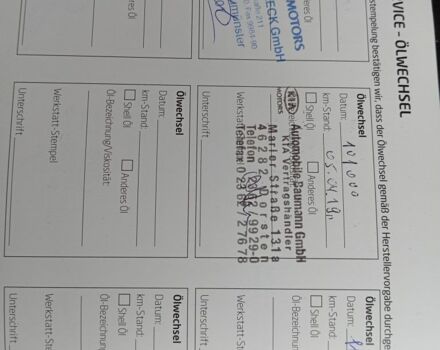 VICE - ÖLWECHSEL
stempelung bestätigen wir, dass der Ölwechsel gemäß der Herstellervorgabe durchge
Anderes Öl
MOTORS
ECK GmbH
Ölwechsel
Datum: 101000
km-Stand: 05.04.19
Shell Öl
Anderes Öl
KIA MOTORS
Automobile Baumann GmbH
KIA Vertragshändler
Marler Straße 131a
46282 Dorsten
Telefon 02362/9929-0
Telefax 02362/27678
Unterschrift
Ölwechsel
Datum:
km-Stand:
Shell Öl
Anderes Öl
Öl-Bezeichnung/Viskosität:
Werkstatt-Stempel
Unterschrift
Ölwechsel
Datum:
km-Stand:
Shell Öl
Öl-Bezeichnun
Werkstatt-Ste
Unterschrift
Ölwechsel
Datum:
km-Stand:
Shell Öl
Öl-Bezeichn
Werkstatt-St
Unterschrift